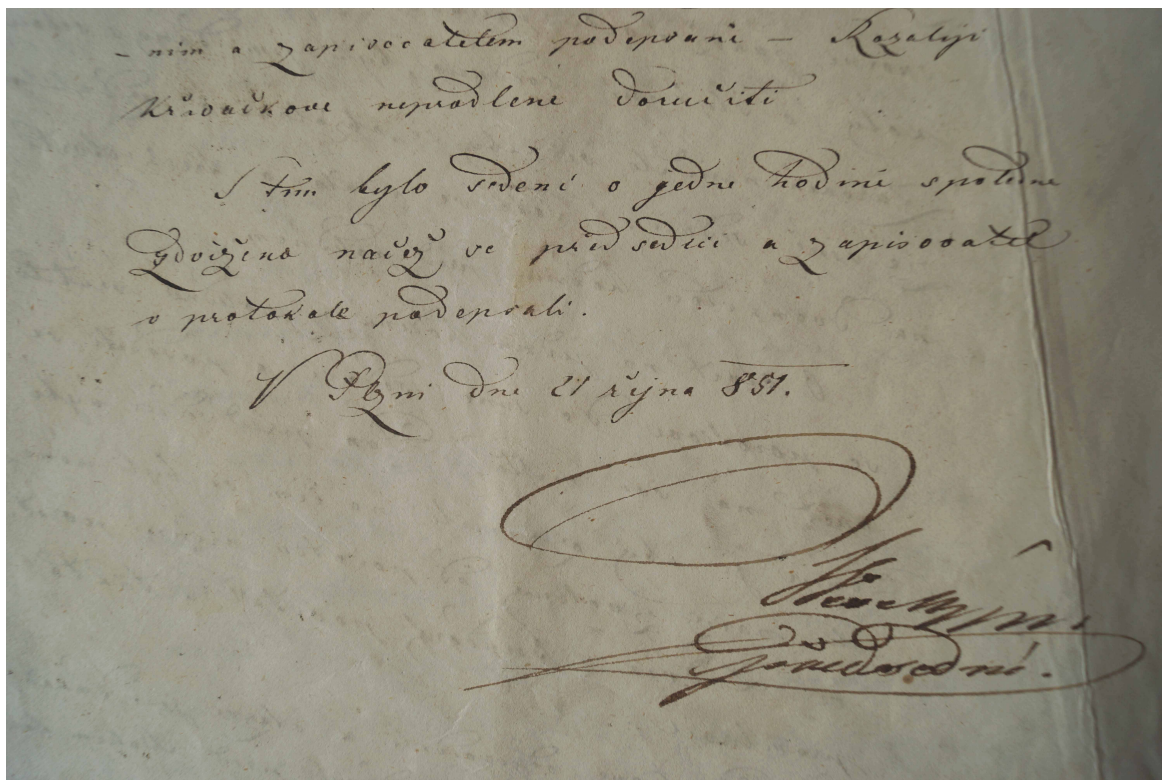 -ním a zapisovatelem podepsané – Rozaliji
Křiváčkove neprodleně doručiti
S tím bylo sedění o gedne hodině s poledne
zdvižено načež se předsedící a zapisovatel
v protokole podepsali.
V Plzni dne 21 října 851.
předsední.